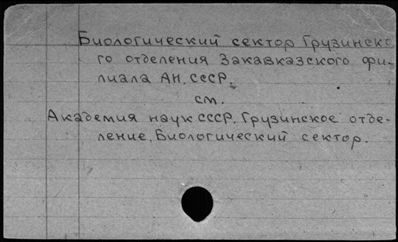 Биологический сектор Грузинско
го отделения Закавказского фи-
лиала АН. СССР.
см.
Академия наук СССР. Грузинское отде-
ление. Биологический сектор.